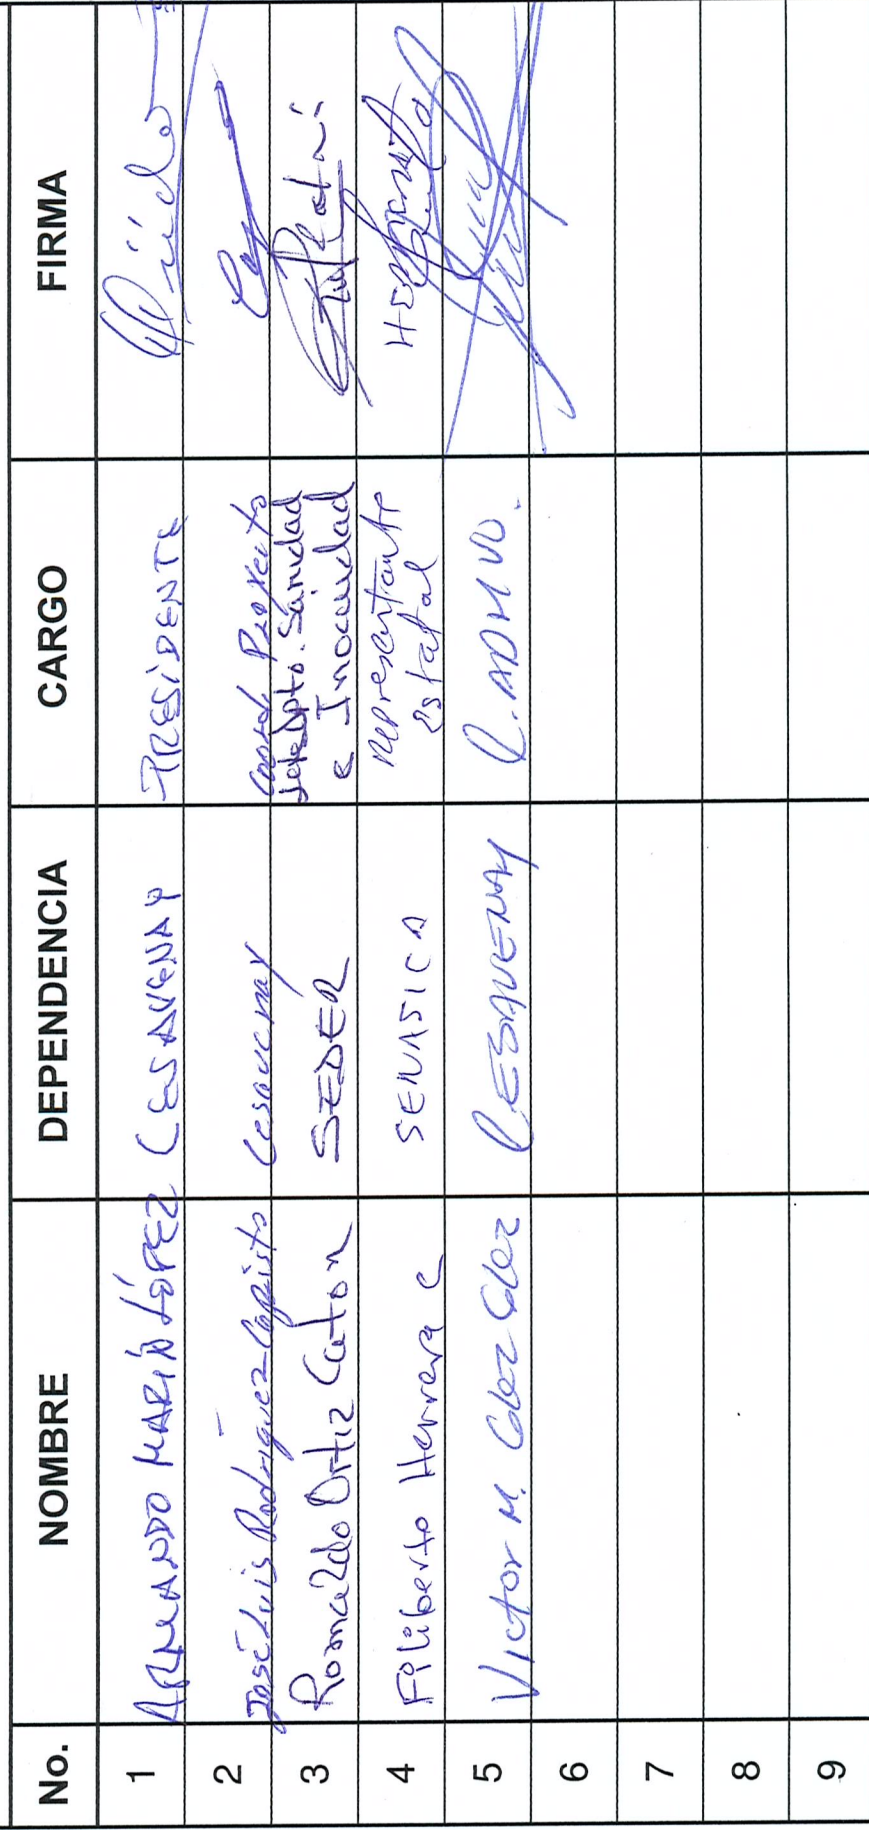 No. NOMBRE DEPENDENCIA CARGO FIRMA
1 ARMANDO MARÍN LÓPEZ CESAVENAY PRESIDENTE
2 José Luis Rodríguez Capisto Cesavenay Coord. Proyecto
3 Romaldo Ortiz Caton SEDER Jefe Dpto. Sanidad
e Inocuidad
4 Filiberto Herrera C SENASICA Representante
Estatal
5 Victor M. Glez Glez CESAVENAY C. ADMVO.
6
7
8
9